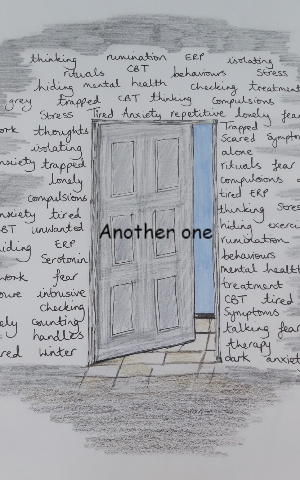 thinking rumination ERP isolating
rituals CBT behaviours Stress
hiding mental health checking treatment
grey trapped CBT thinking compulsions
Stress Tired Anxiety repetitive lonely fear
work thoughts Trapped
isolating Scared Symptoms
anxiety trapped alone
lonely rituals fear
compulsions compulsions
anxiety tired tired ERP
CBT unwanted thinking Stress
Another one
hiding ERP hiding
Serotonin rumination
behaviours
work fear mental health
intrusive treatment
checking CBT tired
counting Symptoms
handles talking fear
winter therapy
dark